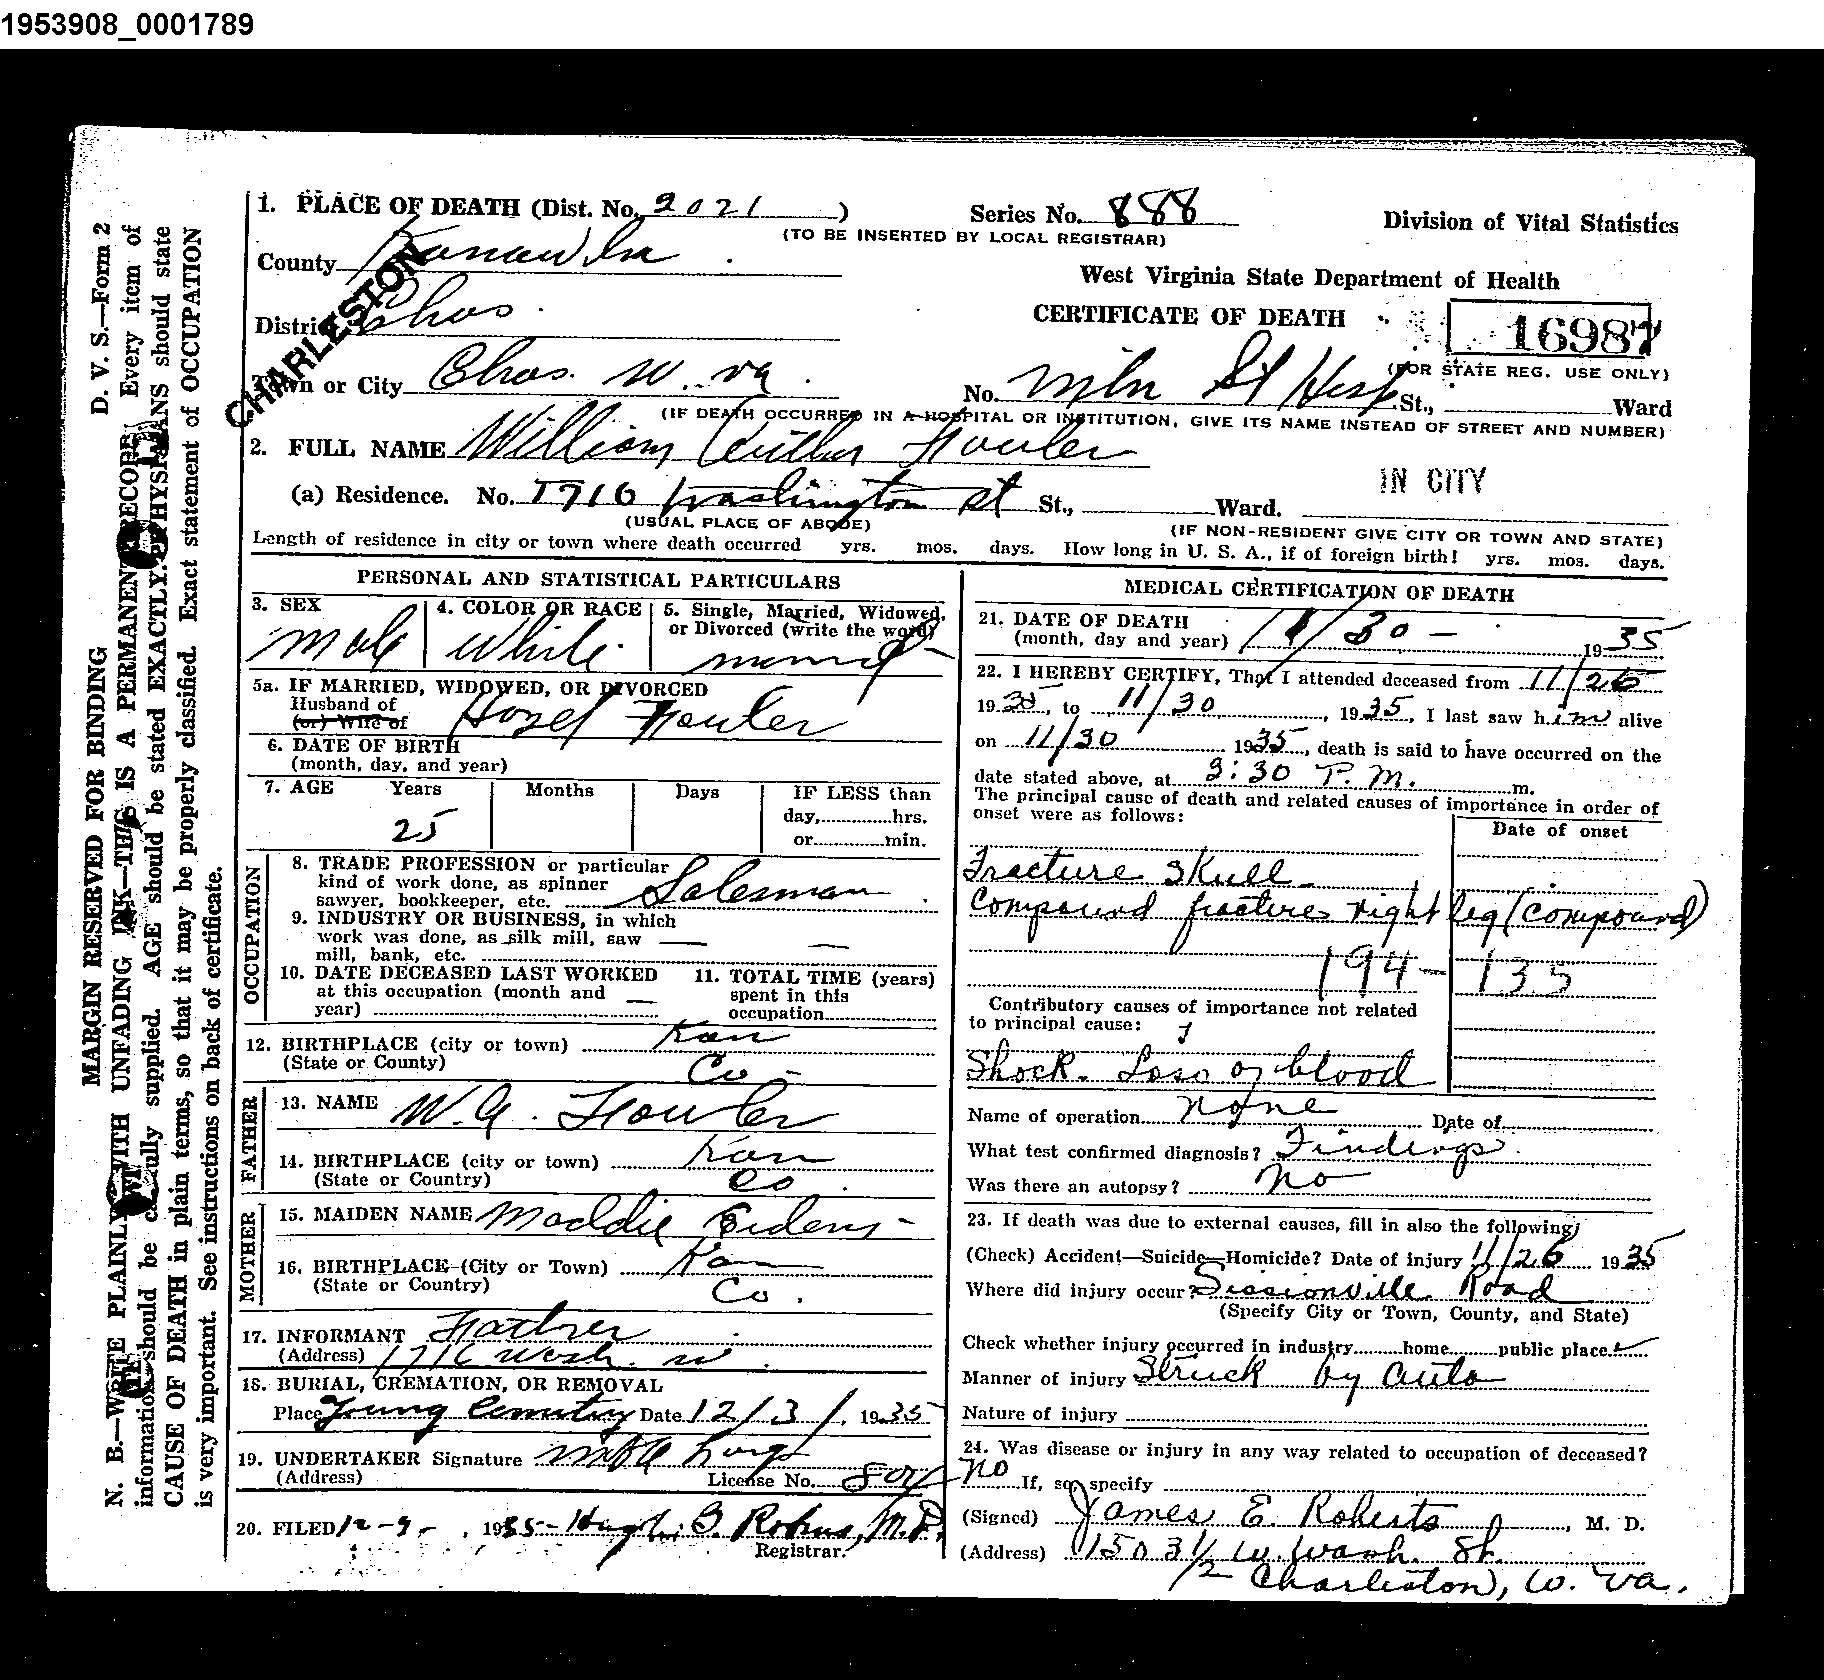 1953908_0001789
D. V. S.—Form 2
MARGIN RESERVED FOR BINDING
N. B.—WRITE PLAINLY WITH UNFADING INK—THIS IS A PERMANENT RECORD. Every item of
information should be carefully supplied. AGE should be stated EXACTLY. PHYSICIANS should state
CAUSE OF DEATH in plain terms, so that it may be properly classified. Exact statement of OCCUPATION
is very important. See instructions on back of certificate.
1. PLACE OF DEATH (Dist. No. 2021 )
Series No. 888
(TO BE INSERTED BY LOCAL REGISTRAR)
Division of Vital Statistics
County Kanawha
West Virginia State Department of Health
CERTIFICATE OF DEATH
16987
(FOR STATE REG. USE ONLY)
CHARLESTON
District Chas.
Town or City Chas. W. va.
No. Mtn St Hosp. St., Ward
(IF DEATH OCCURRED IN A HOSPITAL OR INSTITUTION, GIVE ITS NAME INSTEAD OF STREET AND NUMBER)
2. FULL NAME William Fowler
IN CITY
(a) Residence. No. 1716 Washington St St., Ward.
(USUAL PLACE OF ABODE)
(IF NON-RESIDENT GIVE CITY OR TOWN AND STATE)
Length of residence in city or town where death occurred yrs. mos. days. How long in U. S. A., if of foreign birth? yrs. mos. days.
PERSONAL AND STATISTICAL PARTICULARS
3. SEX
Male
4. COLOR OR RACE
White
5. Single, Married, Widowed, or Divorced (write the word)
married
5a. IF MARRIED, WIDOWED, OR DIVORCED
Husband of
(or) Wife of
Hazel Fowler
6. DATE OF BIRTH
(month, day, and year)
7. AGE Years Months Days IF LESS than
day, hrs.
or min.
25
OCCUPATION
8. TRADE PROFESSION or particular
kind of work done, as spinner
sawyer, bookkeeper, etc. Salesman
9. INDUSTRY OR BUSINESS, in which
work was done, as silk mill, saw
mill, bank, etc.
10. DATE DECEASED LAST WORKED
at this occupation (month and
year)
11. TOTAL TIME (years)
spent in this
occupation
12. BIRTHPLACE (city or town) Kan
(State or County) Co -
FATHER
13. NAME W. A. Fowler
14. BIRTHPLACE (city or town) Kan
(State or Country) Co.
MOTHER
15. MAIDEN NAME Maddie
16. BIRTHPLACE (City or Town) Kan
(State or Country) Co.
17. INFORMANT Father
(Address) 1716 Wash. W.
18. BURIAL, CREMATION, OR REMOVAL
Place Young Cemetery Date 12/3/ 1935
19. UNDERTAKER Signature
(Address) License No.
20. FILED 12-9-, 1935-
M.D.
Registrar.
MEDICAL CERTIFICATION OF DEATH
21. DATE OF DEATH
(month, day and year) 11/30 - 1935
22. I HEREBY CERTIFY, That I attended deceased from 11/26
1935, to 11/30, 1935, I last saw him alive
on 11/30 1935, death is said to have occurred on the
date stated above, at 3:30 P.M. m.
The principal cause of death and related causes of importance in order of
onset were as follows:
Date of onset
Fracture Skull
Compound fractures right leg (compound)
194- 135
Contributory causes of importance not related
to principal cause:
Shock. Loss of blood
Name of operation none Date of
What test confirmed diagnosis? Findings
Was there an autopsy? No
23. If death was due to external causes, fill in also the following
(Check) Accident—Suicide—Homicide? Date of injury 11/26 1935
Where did injury occur? Sissionville Road
(Specify City or Town, County, and State)
Check whether injury occurred in industry home public place ✓
Manner of injury Struck by auto
Nature of injury
24. Was disease or injury in any way related to occupation of deceased?
no If, so, specify
(Signed) James E. Roberts, M. D.
(Address) 1503½ W. Wash. St.
Charleston, W. Va.